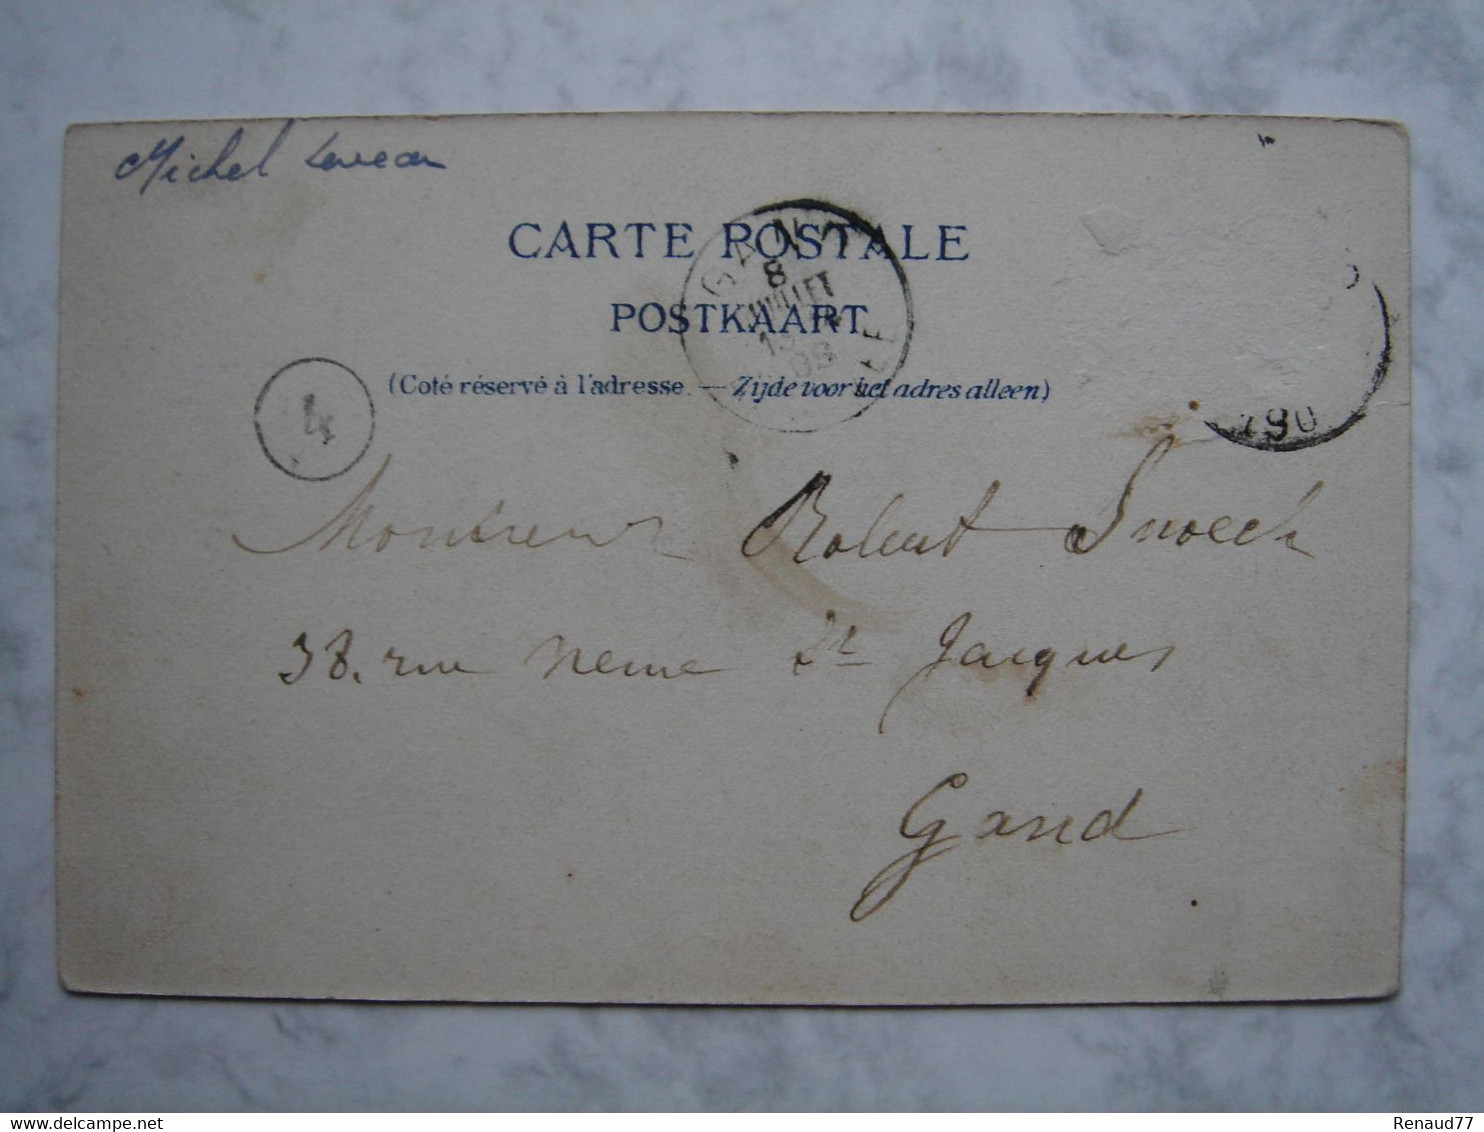 Michel
CARTE POSTALE
POSTKAART
(Coté réservé à l'adresse. — Zijde voor het adres alleen)
GAND
8
JUILLET
4
190
Monsieur Robert Snoeck
38. rue neuve St Jacques
Gand
delcampe.net
Renaud77